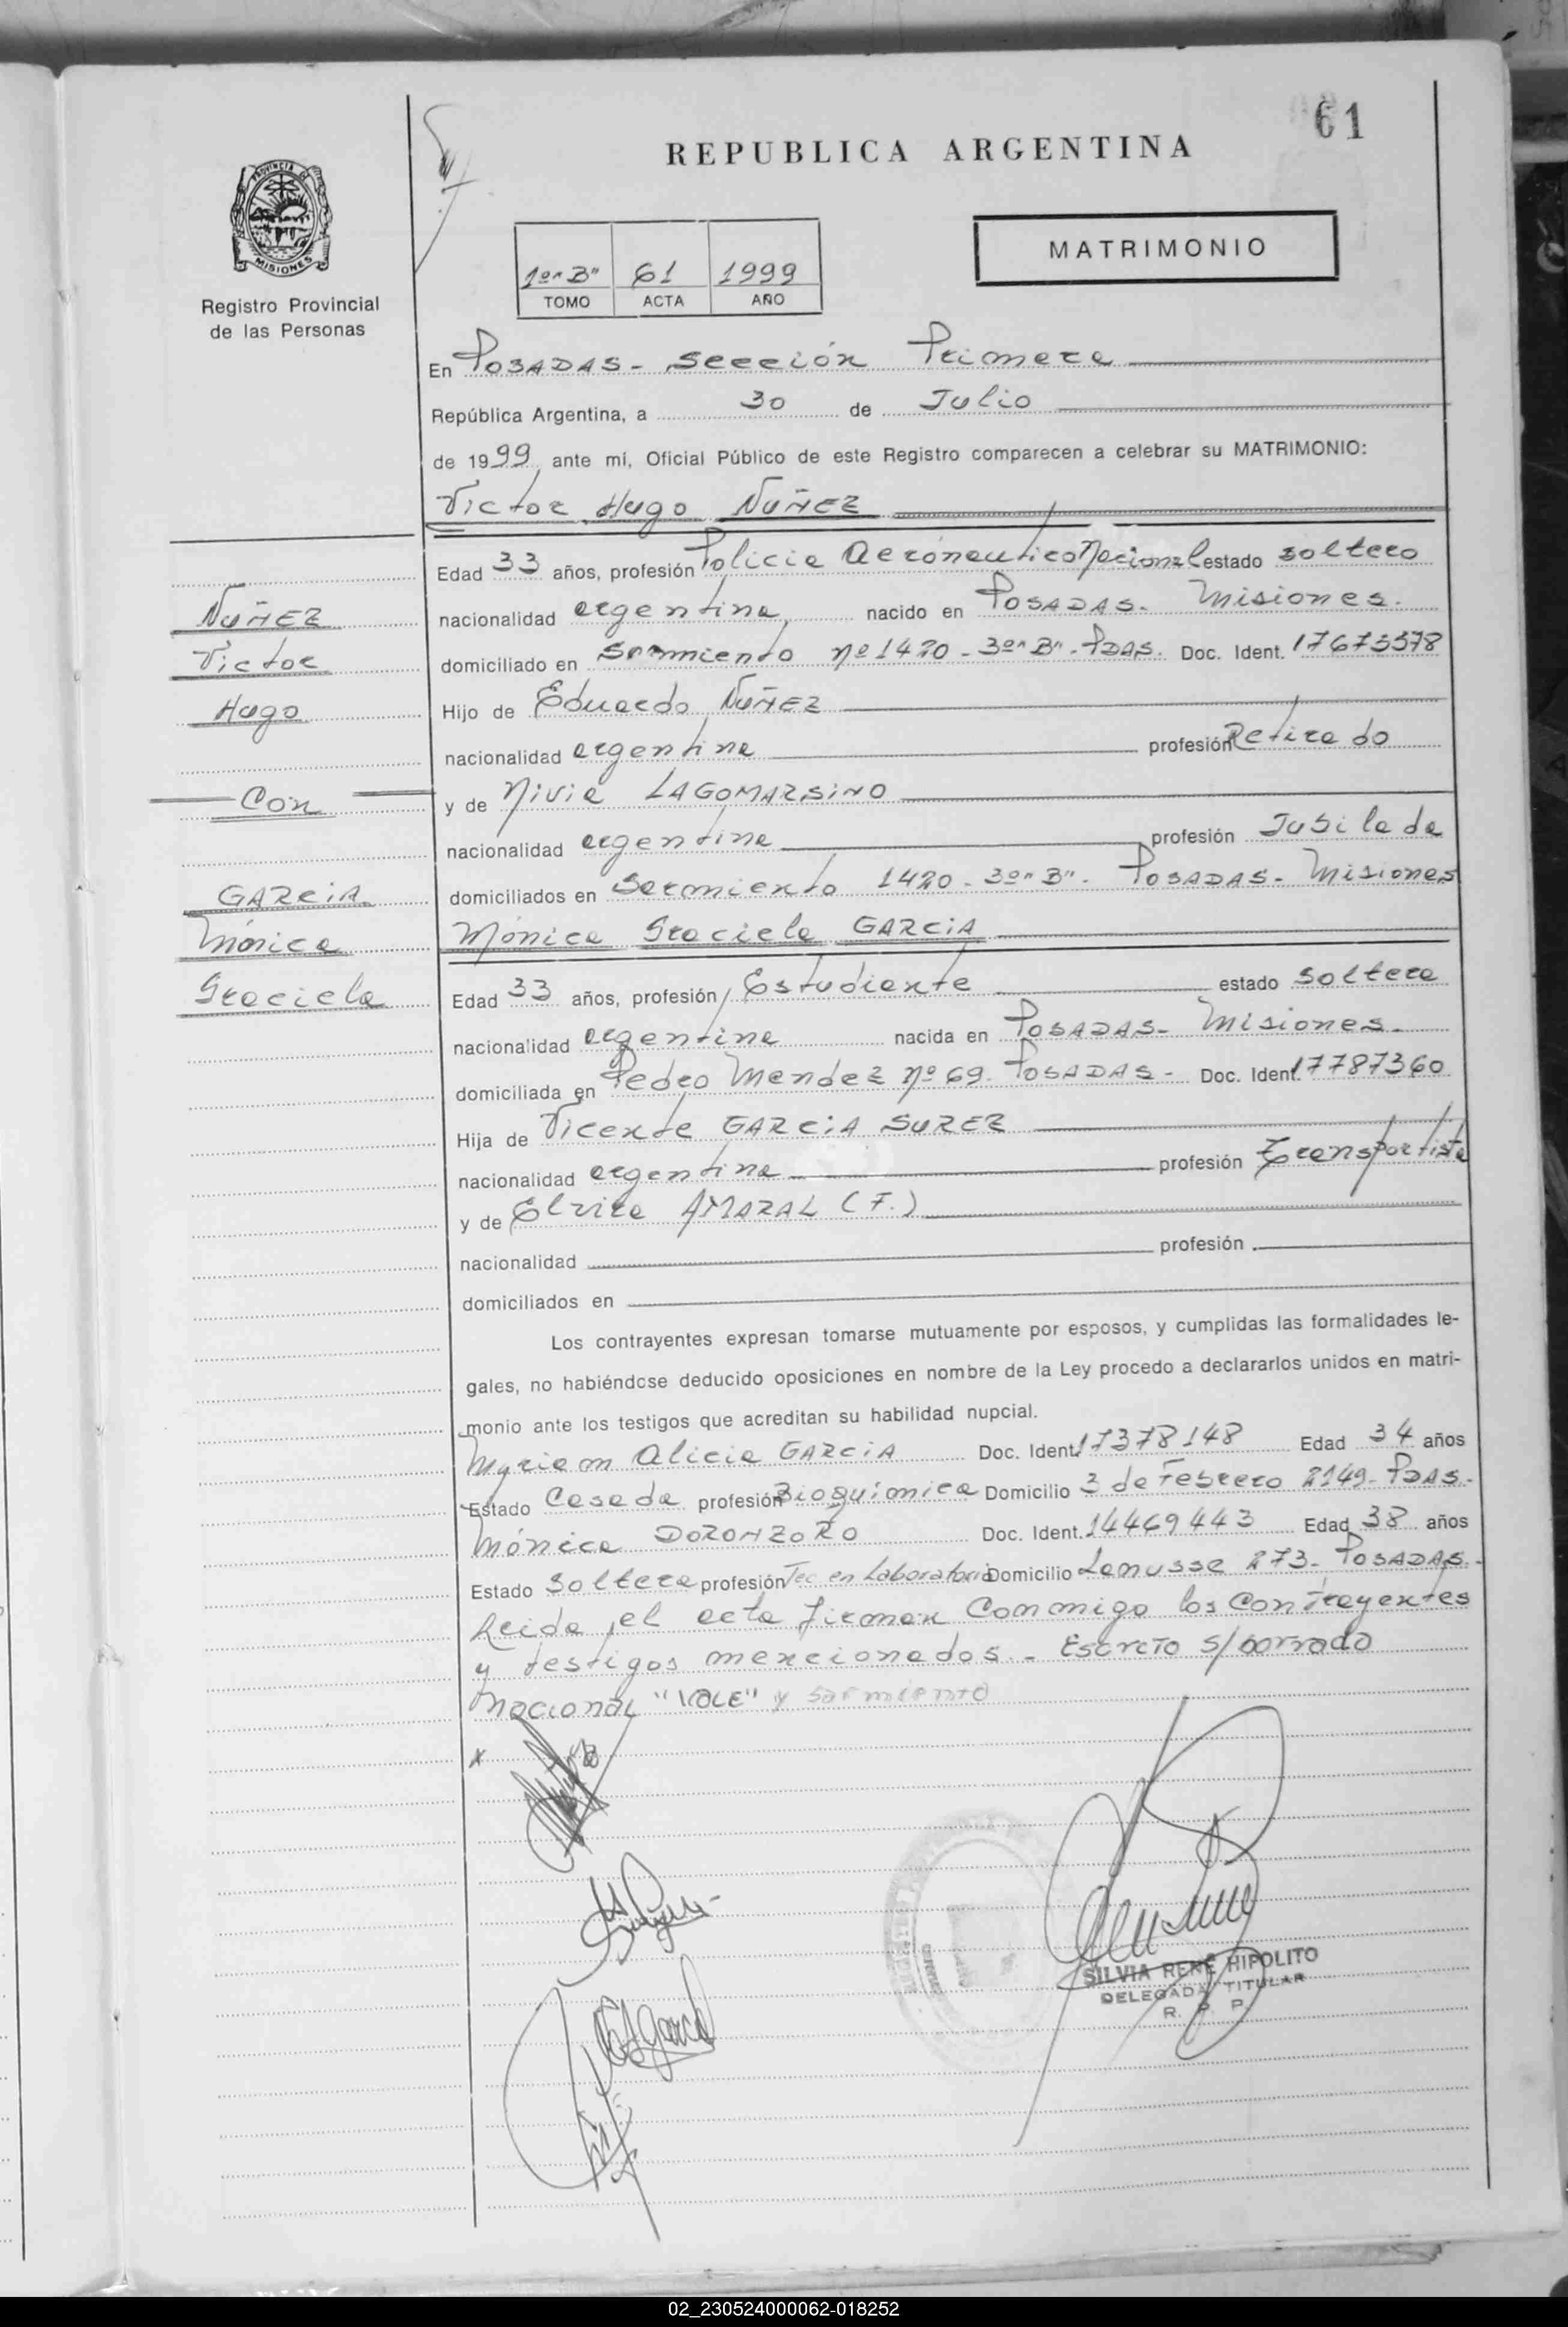 61
REPUBLICA ARGENTINA
PROVINCIA DE
MISIONES
Registro Provincial
de las Personas
1º "B" 61 1999
TOMO ACTA AÑO
MATRIMONIO
En POSADAS - Sección Primera
República Argentina, a 30 de Julio
de 1999 ante mi, Oficial Público de este Registro comparecen a celebrar su MATRIMONIO:
Victor Hugo NUÑEZ
Edad 33 años, profesión Policia Aeronautico Nacional estado soltero
NUÑEZ
nacionalidad argentina nacido en POSADAS - Misiones.
Victor
domiciliado en Sarmiento nº 1420 - 3º "B" - PDAS. Doc. Ident. 17673378
Hugo
Hijo de Eduardo NUÑEZ
nacionalidad argentina profesión Retirado
Con
y de Nivia LAGOMARSINO
nacionalidad argentina profesión Jubilada
GARCIA
domiciliados en Sarmiento 1420 - 3º "B" - POSADAS - Misiones
Mónica
Mónica Graciela GARCIA
Graciela
Edad 33 años, profesión Estudiante estado soltera
nacionalidad argentina nacida en POSADAS - Misiones -
domiciliada en Pedro Mendez nº 69. POSADAS - Doc. Ident. 17787360
Hija de Vicente GARCIA SUREZ
nacionalidad argentina profesión Transportista
y de Elvira AMARAL (F.)
nacionalidad profesión
domiciliados en
Los contrayentes expresan tomarse mutuamente por esposos, y cumplidas las formalidades le-
gales, no habiéndose deducido oposiciones en nombre de la Ley procedo a declararlos unidos en matri-
monio ante los testigos que acreditan su habilidad nupcial.
Myriam Alicia GARCIA Doc. Ident. 17378148 Edad 34 años
Estado Casada profesión Bioquímica Domicilio 3 de Febrero 2149 - PDAS -
Mónica DORONZORO Doc. Ident. 14469443 Edad 38 años
Estado Soltera profesión Tec en Laboratorio Domicilio Lanusse 273 - POSADAS -
Leida el acta firman Conmigo los Contrayentes
y testigos mencionados - Escrito s/borrado
Nacional "VALE" y Sarmiento
SILVIA RENÉ HIPOLITO
DELEGADA TITULAR
R. P. P.
02_230524000062-018252